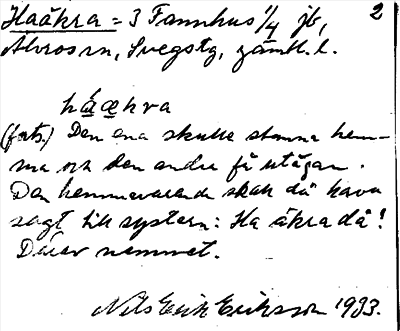 Haåkra = 3 Tannhus 1/4 jb, 2
Åkrosen, Svegstg, Jämtl. l.
håækra
(forts.) Den ena skulle stanna hem-
ma och den andre få utägan.
Den hemmavarande skall då hava
sagt till systern: Ha åkra då!
Därav namnet.
Nils Erik Eriksson 1933.